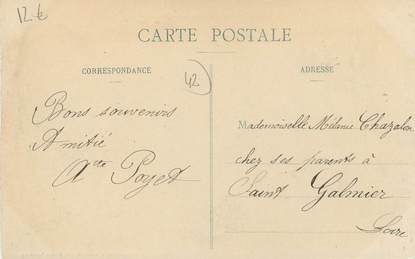 12 €
CARTE POSTALE
CORRESPONDANCE
42
ADRESSE
Bons souvenirs
Amitié
Ate Poyet
Mademoiselle Mélanie Chazalon
chez ses parents à
Saint Galmier
Loire